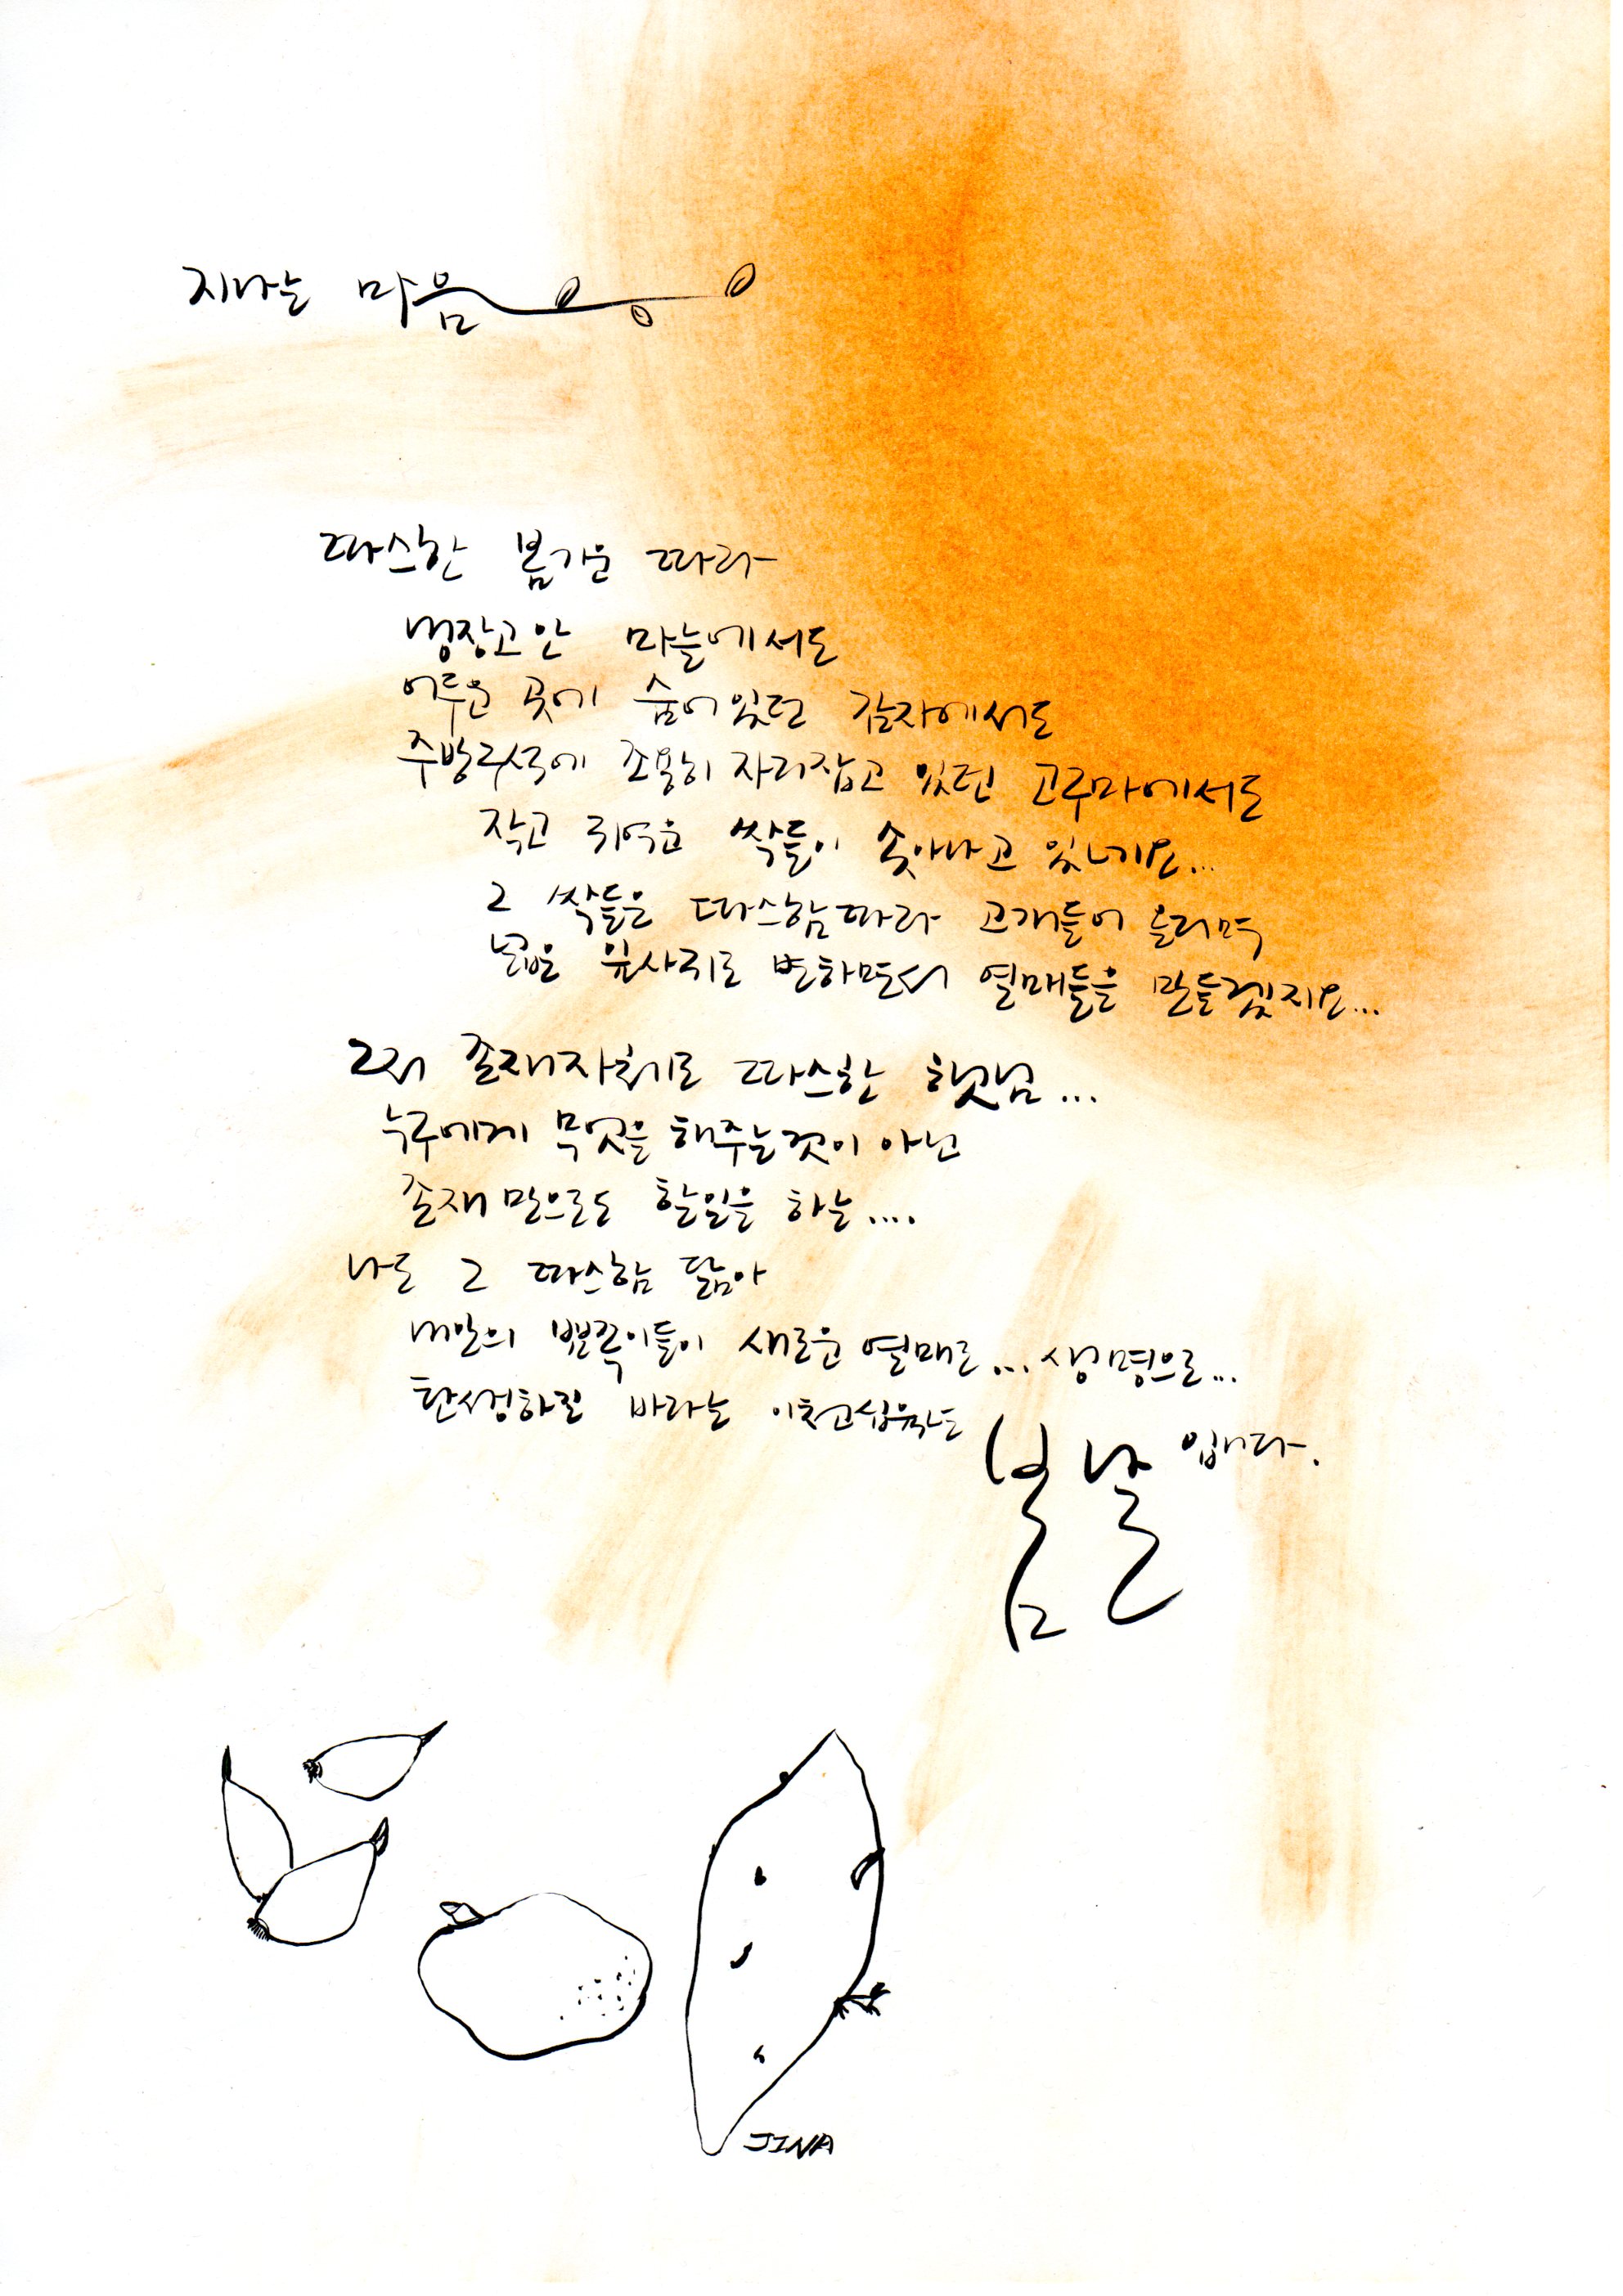 지나는 마음
따스한 봄기운 따라
냉장고안 마늘에서도
어두운 곳에 숨어있던 감자에서도
주방구석에 조용히 자리잡고 있던 고구마에서도
작고 귀여운 싹들이 솟아나고 있네요...
그 싹들은 따스함따라 고개들어 올리며
넓은 잎사귀로 변하면서 열매들을 만들겠지요...
그저 존재자체로 따스한 햇님...
누구에게 무엇을 해주는것이 아닌
존재 만으로도 할일을 하는....
나도 그 따스함 닮아
내안의 뾰쪽이들이 새로운 열매로...생명으로...
탄생하길 바라는 이천십육년도
봄날 입니다.
JINA